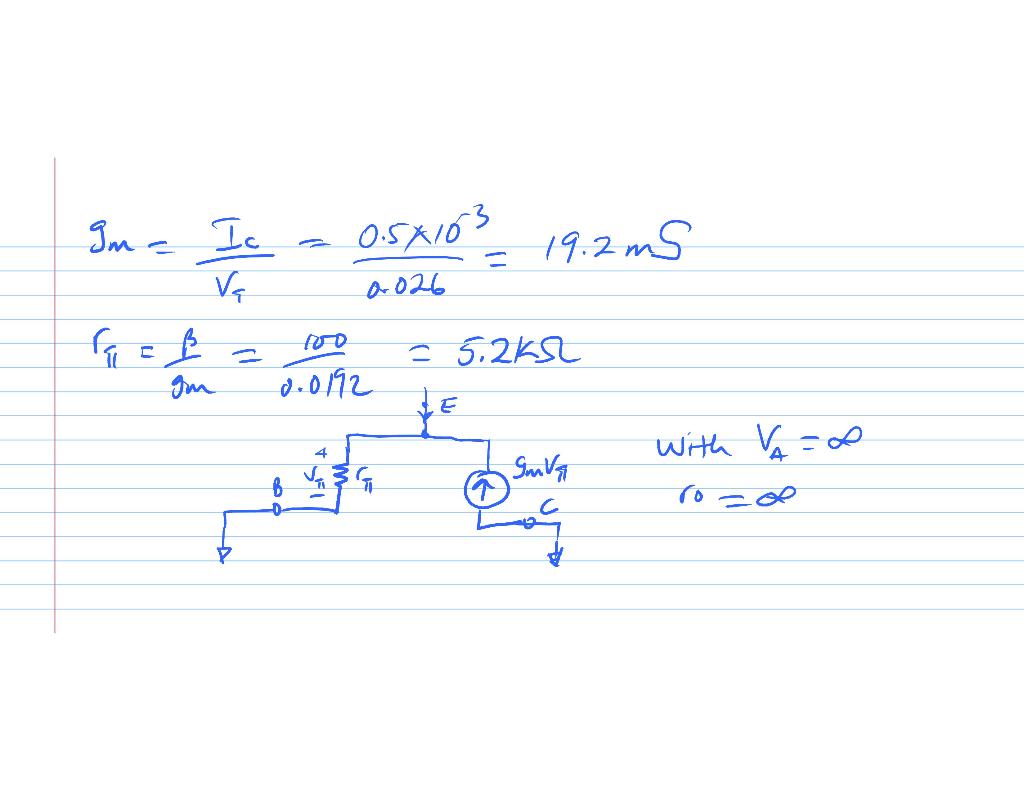 gm = Ic / VT = 0.5×10^-3 / 0.026 = 19.2 mS
rπ = β / gm = 100 / 0.0192 = 5.2KΩ
E
+
Vπ
−
rπ
gmVπ
B
C
With VA = ∞
ro = ∞